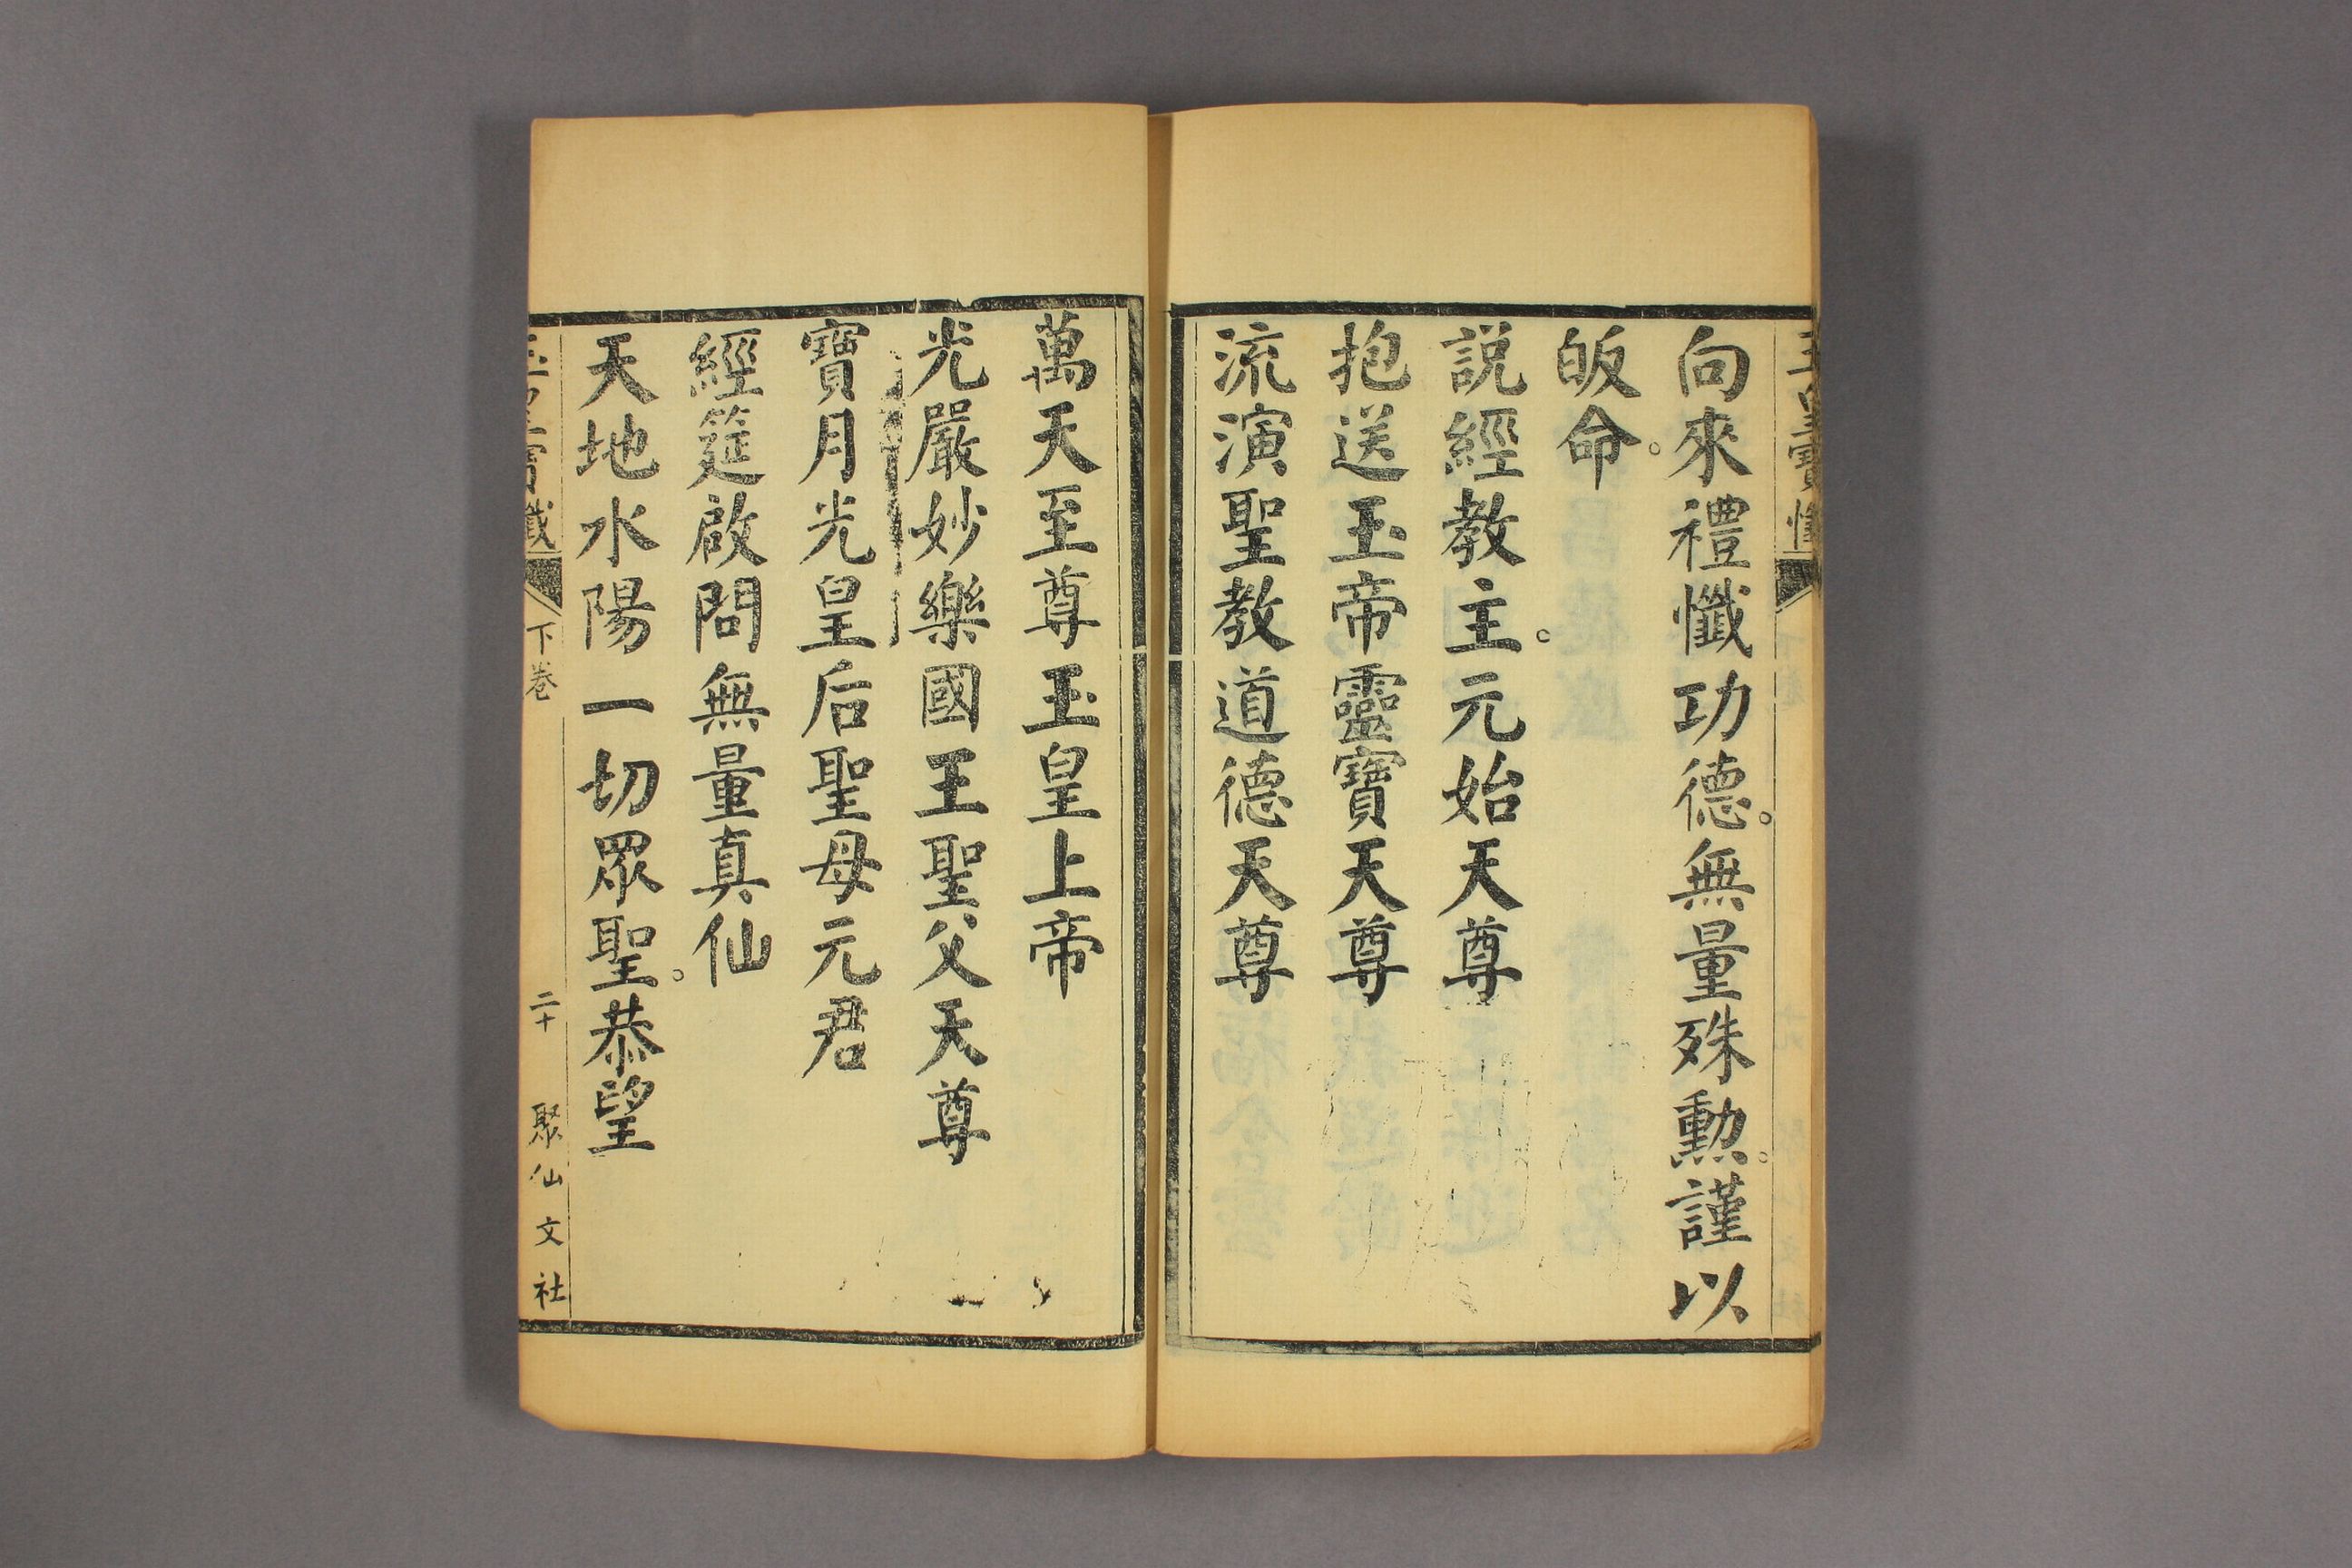 向來禮懺功德。無量殊勲。謹以
皈命。
説經教主。元始天尊
抱送玉帝靈寶天尊
流演聖教道德天尊
萬天至尊玉皇上帝
光嚴妙樂國王聖父天尊
寶月光皇后聖母元君
經筵啟問無量真仙
天地水陽一切眾聖。恭望
下卷
二十
聚仙文社